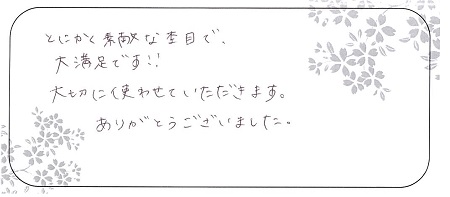 とにかく素敵な杢目で、
大満足です!!
大切に使わせていただきます。
ありがとうございました。